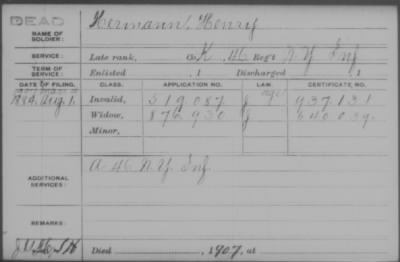 DEAD
NAME OF SOLDIER: Hermann, Henry
SERVICE: Late rank, Co. K, 46 Reg't N.Y. Inf
TERM OF SERVICE: Enlisted , 1 Discharged , 1
DATE OF FILING. CLASS. APPLICATION NO. LAW. CERTIFICATE NO.
1884, Aug. 1. Invalid, 519.087 937.131
Widow, 876.930 640.039.
Minor,
ADDITIONAL SERVICES: A 46 N.Y. Inf.
REMARKS:
Died , 1907, at